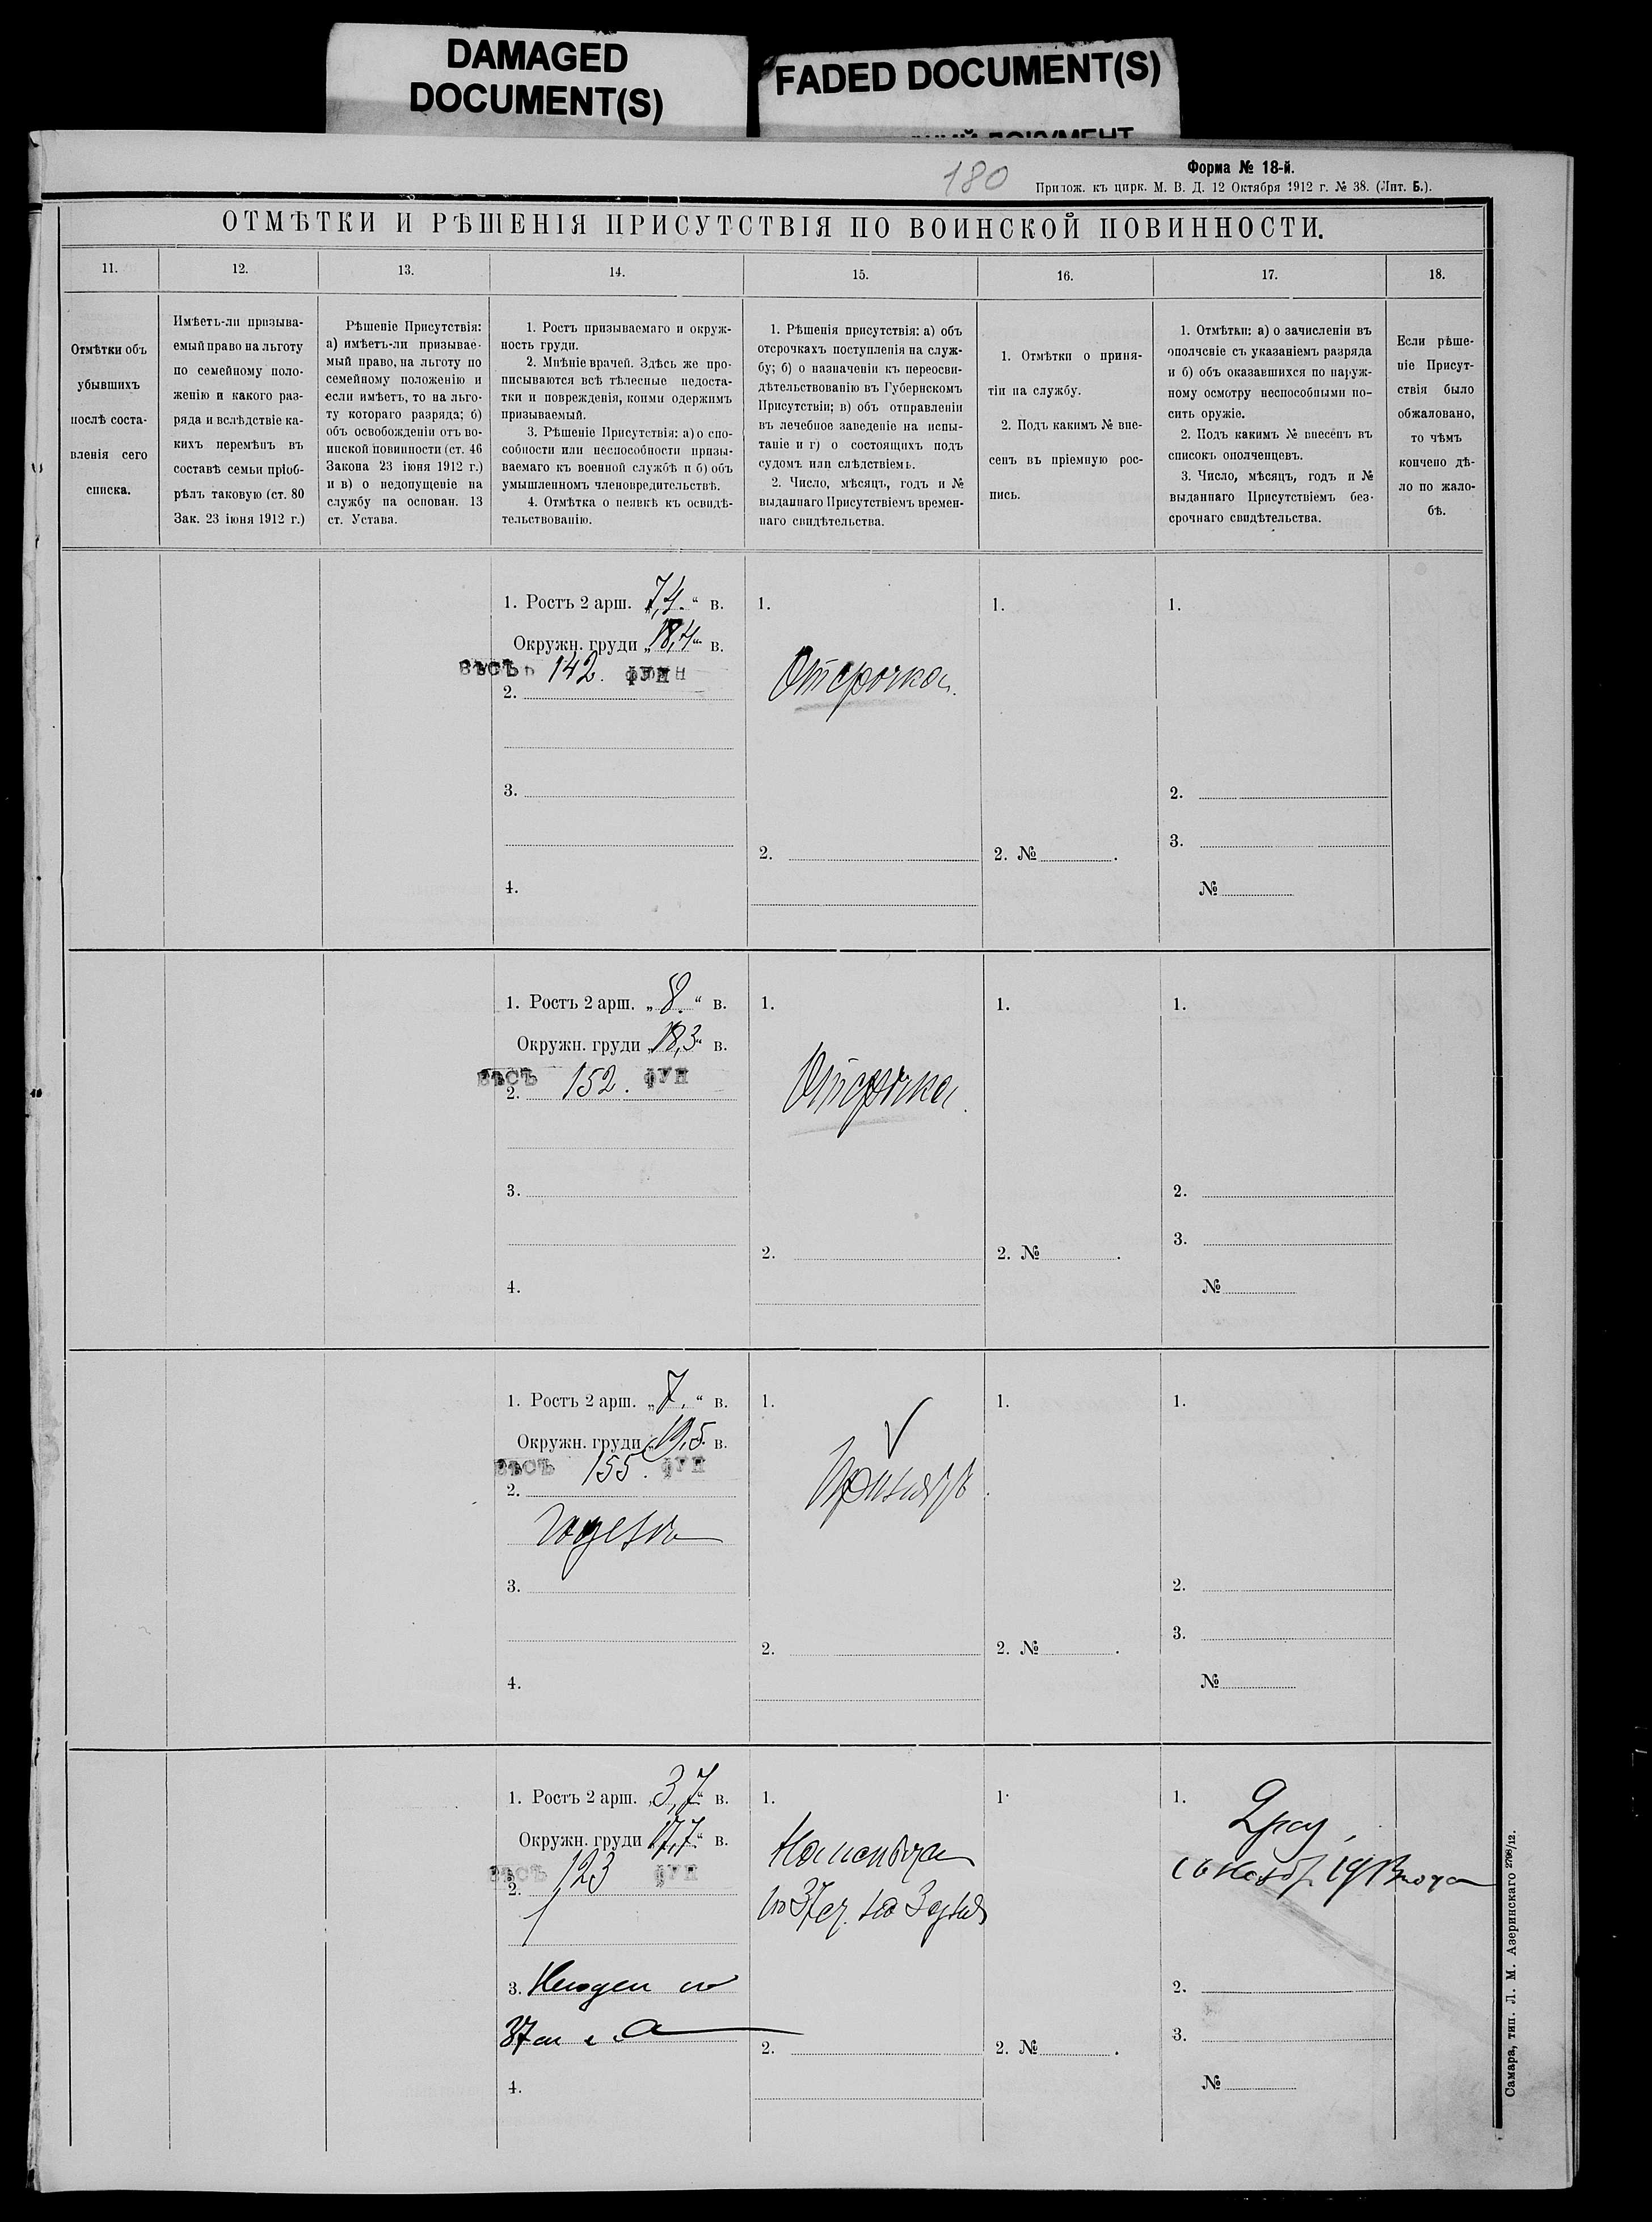 DAMAGED
DOCUMENT(S)
FADED DOCUMENT(S)
180
Форма № 18-й.
Прилож. къ цирк. М. В. Д. 12 Октября 1912 г. № 38. (Лит. Б.).
ОТМѢТКИ И РѢШЕНІЯ ПРИСУТСТВІЯ ПО ВОИНСКОЙ ПОВИННОСТИ.
11.
12.
13.
14.
15.
16.
17.
18.
Отмѣтки объ
убывшихъ
послѣ соста-
вленія сего
списка.
Имѣетъ-ли призыва-
емый право на льготу
по семейному поло-
женію и какого раз-
ряда и вслѣдствіе ка-
кихъ перемѣнъ въ
составѣ семьи пріоб-
рѣлъ таковую (ст. 80
Зак. 23 іюня 1912 г.)
Рѣшеніе Присутствія:
а) имѣетъ-ли призывае-
мый право, на льготу по
семейному положенію и
если имѣетъ, то на льго-
ту котораго разряда; б)
объ освобожденіи отъ во-
инской повинности (ст. 46
Закона 23 іюня 1912 г.)
и в) о недопущеніе на
службу на основан. 13
ст. Устава.
1. Ростъ призываемаго и окруж-
ность груди.
2. Мнѣніе врачей. Здѣсь же про-
писываются всѣ тѣлесные недоста-
тки и поврежденія, коими одержимъ
призываемый.
3. Рѣшеніе Присутствія: а) о спо-
собности или неспособности призы-
ваемаго къ военной службѣ и б) объ
умышленномъ членовредительствѣ.
4. Отмѣтка о неявкѣ къ освидѣ-
тельствованію.
1. Рѣшенія присутствія: а) объ
отсрочкахъ поступленія на служ-
бу; б) о назначеніи къ переосви-
дѣтельствованію въ Губернскомъ
Присутствіи; в) объ отправленіи
въ лечебное заведеніе на испы-
таніе и г) о состоящихъ подъ
судомъ или слѣдствіемъ.
2. Число, мѣсяцъ, годъ и №
выданнаго Присутствіемъ времен-
наго свидѣтельства.
1. Отмѣтки о приня-
тіи на службу.
2. Подъ какимъ № вне-
сенъ въ пріемную рос-
пись.
1. Отмѣтки: а) о зачисленіи въ
ополченіе съ указаніемъ разряда
и б) объ оказавшихся по наруж-
ному осмотру неспособными но-
сить оружіе.
2. Подъ какимъ № внесенъ въ
списокъ ополченцевъ.
3. Число, мѣсяцъ, годъ и №
выданнаго Присутствіемъ без-
срочнаго свидѣтельства.
Если рѣше-
ніе Присут-
ствія было
обжаловано,
то чѣмъ
кончено дѣ-
ло по жало-
бѣ.
1. Ростъ 2 арш. „7,4.“ в.
Окружн. груди „18,4“ в.
ВѢСЪ 142. ФУН
2.
3.
4.
1.
Отсрочка.
2.
1.
2. №
1.
2.
3.
№
1. Ростъ 2 арш. „8.“ в.
Окружн. груди „18,3“ в.
ВѢСЪ 152. ФУН
2.
3.
4.
1.
Отсрочка.
2.
1.
2. №
1.
2.
3.
№
1. Ростъ 2 арш. „7.“ в.
Окружн. груди „19,5. в.
ВѢСЪ 155. ФУН
2.
Годенъ
3.
4.
1.
Принятъ
2.
1.
2. №
1.
2.
3.
№
1. Ростъ 2 арш. „3,7“ в.
Окружн. груди 17,7“ в.
ВѢСЪ 123 ФУН
2.
3. Негоден по
37 ст
4.
1.
На
по 37 ст.
2.
1.
2. №
1.
2 раз
16 Ноябр 1913 года
2.
3.
№
Самара, тип. Л. М. Азеринскаго 2798/12.